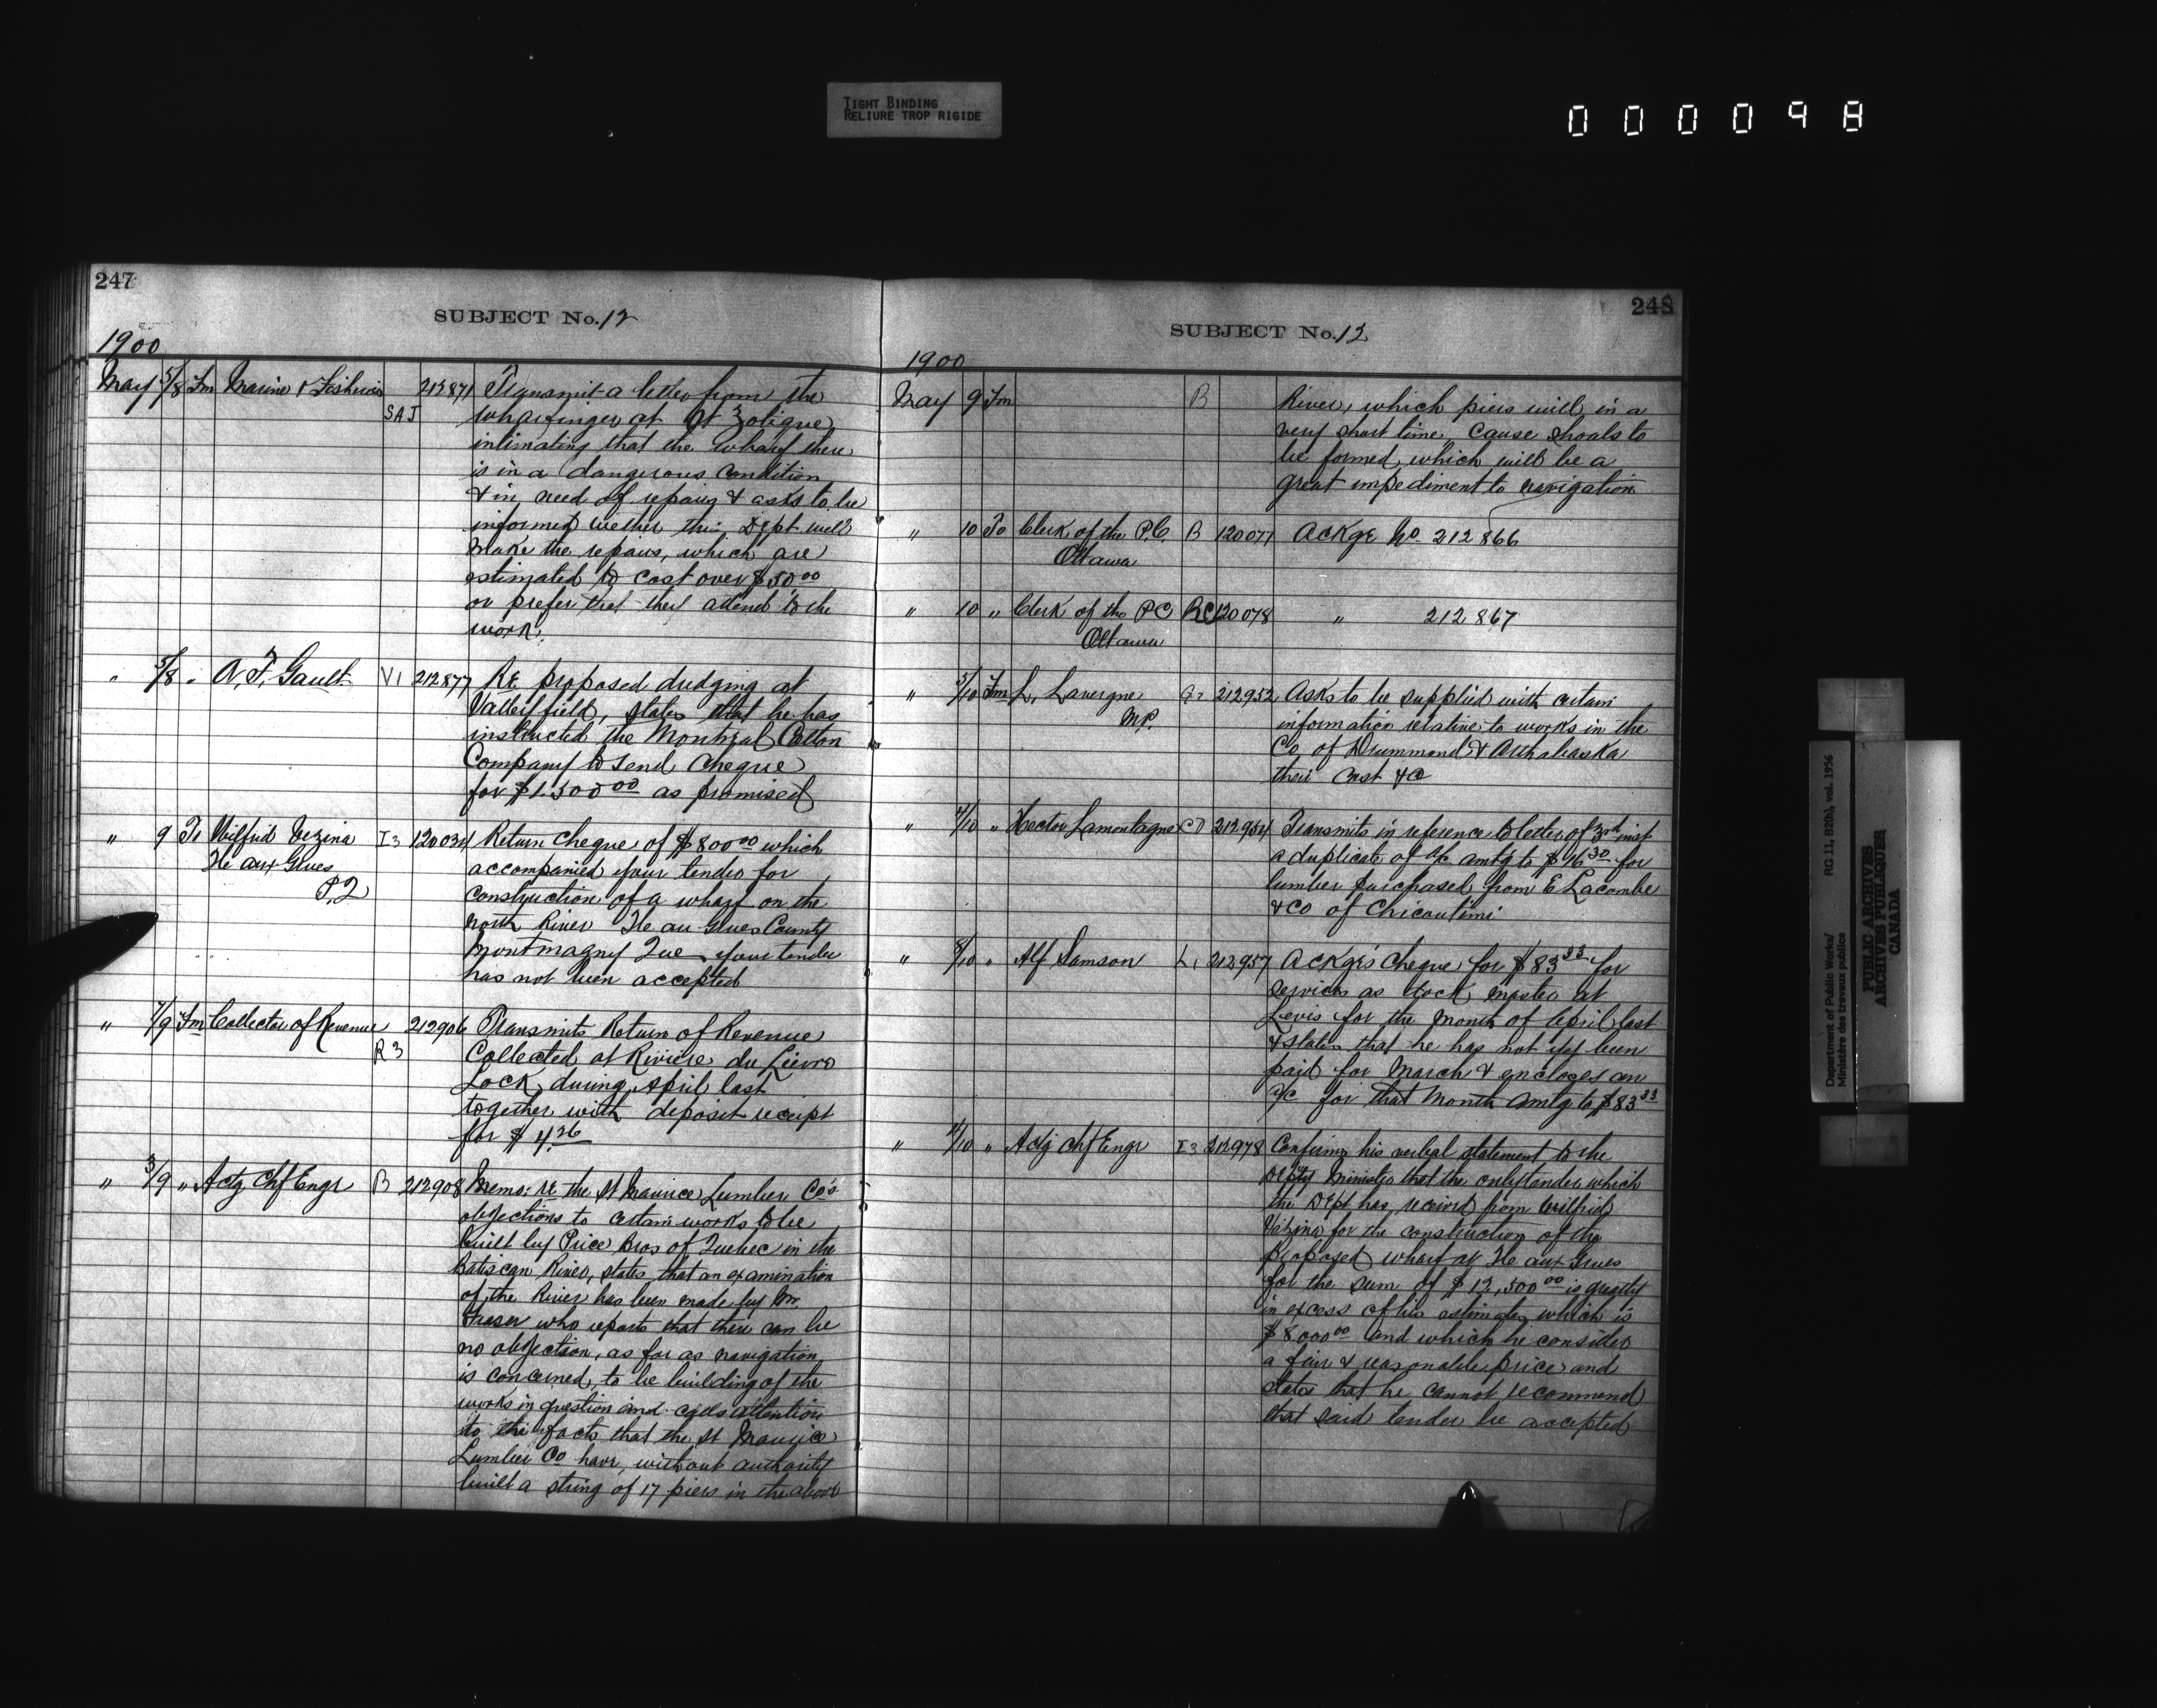 TIGHT BINDING
RELIURE TROP RIGIDE
000098
247
SUBJECT No. 12
1900
May 5/8 Fm Marine & Fisheries SAJ 212871 Transmit a letter from the
wharfinger at St Zotique
intimating that the wharf there
is in a dangerous condition
& in need of repairs & asks to be
informed wether this Dept will
make the repairs, which are
estimated to cost over $50 00
or prefer that they attend to the
work.
" 5/8 " A. F. Gault V1 212877 RE proposed dredging at
Valleyfield, states that he has
instructed the Montreal Cotton
Company to send cheque
for $1.500 00 as promised
" 9 To Wilfrid Vezina I3 120034 Return cheque of $800 00 which
Ile aux Grues accompanied your tender for
P.Q construction of a wharf on the
North River Ile au Grues County
Montmagny Que your tender
has not been accepted
" 7/9 Fm Collector of Revenue R3 212906 Transmits Return of Revenue
Collected at Riviere du Lievre
Lock during April last
together with deposit receipt
for $ 4.26
" 3/9 " Actg Chf Engr B 212908 Memo: re the St Maurice Lumber Co's
objections to certain works to be
built by Price Bros of Quebec in the
Batiscan River, states that an examination
of the River has been made by Mr.
Fraser who reports that there can be
no objection, as far as navigation
is concerned, to be building of the
works in question and calls attention
to the facts that the St Maurice
Lumber Co have, without authority
built a string of 17 piers in the above
248
SUBJECT No. 12
1900
May 9 Fm B River, which piers will in a
very short time, cause shoals to
be formed, which will be a
great impediment to navigation
" 10 To Clerk of the P.C. B 120077 Ackge No. 212866
Ottawa
" 10 " Clerk of the PC RC 120078 " 212867
Ottawa
" 5/10 Fm L. Lavergne 212952 Asks to be supplied with certain
M.P. information relative to works in the
Co of Drummond & Arthabaska
their cost &c
" 4/10 " Hector Lamontagne 212954 Transmits in reference to letter of 3rd inst
a duplicate of a/c amtg to $16 30 for
lumber purchased from E Lacombe
& Co of Chicoutimi
" 8/10 " Alf Samson L1 212957 Ackges cheque for $83 33 for
services as dock master at
Levis for the month of April last
& states that he has not yet been
paid for March & encloses an
a/c for that month amtg to $83 33
" 4/10 " Actg Chf Engr I3 212978 Confirms his verbal statement to the
Depty Minister that the only tender which
the Dept has received from Wilfrid
Vezina for the construction of the
proposed wharf at Ile aux Grues
for the sum of $12,500 00 is greatly
in excess of his estimate, which is
$8000 00 and which he considers
a fair & reasonable price and
states that he cannot recommend
that said tender be accepted
Department of Public Works/
Ministère des travaux publics
RG 11, B2(b), vol. 1956
PUBLIC ARCHIVES
ARCHIVES PUBLIQUES
CANADA